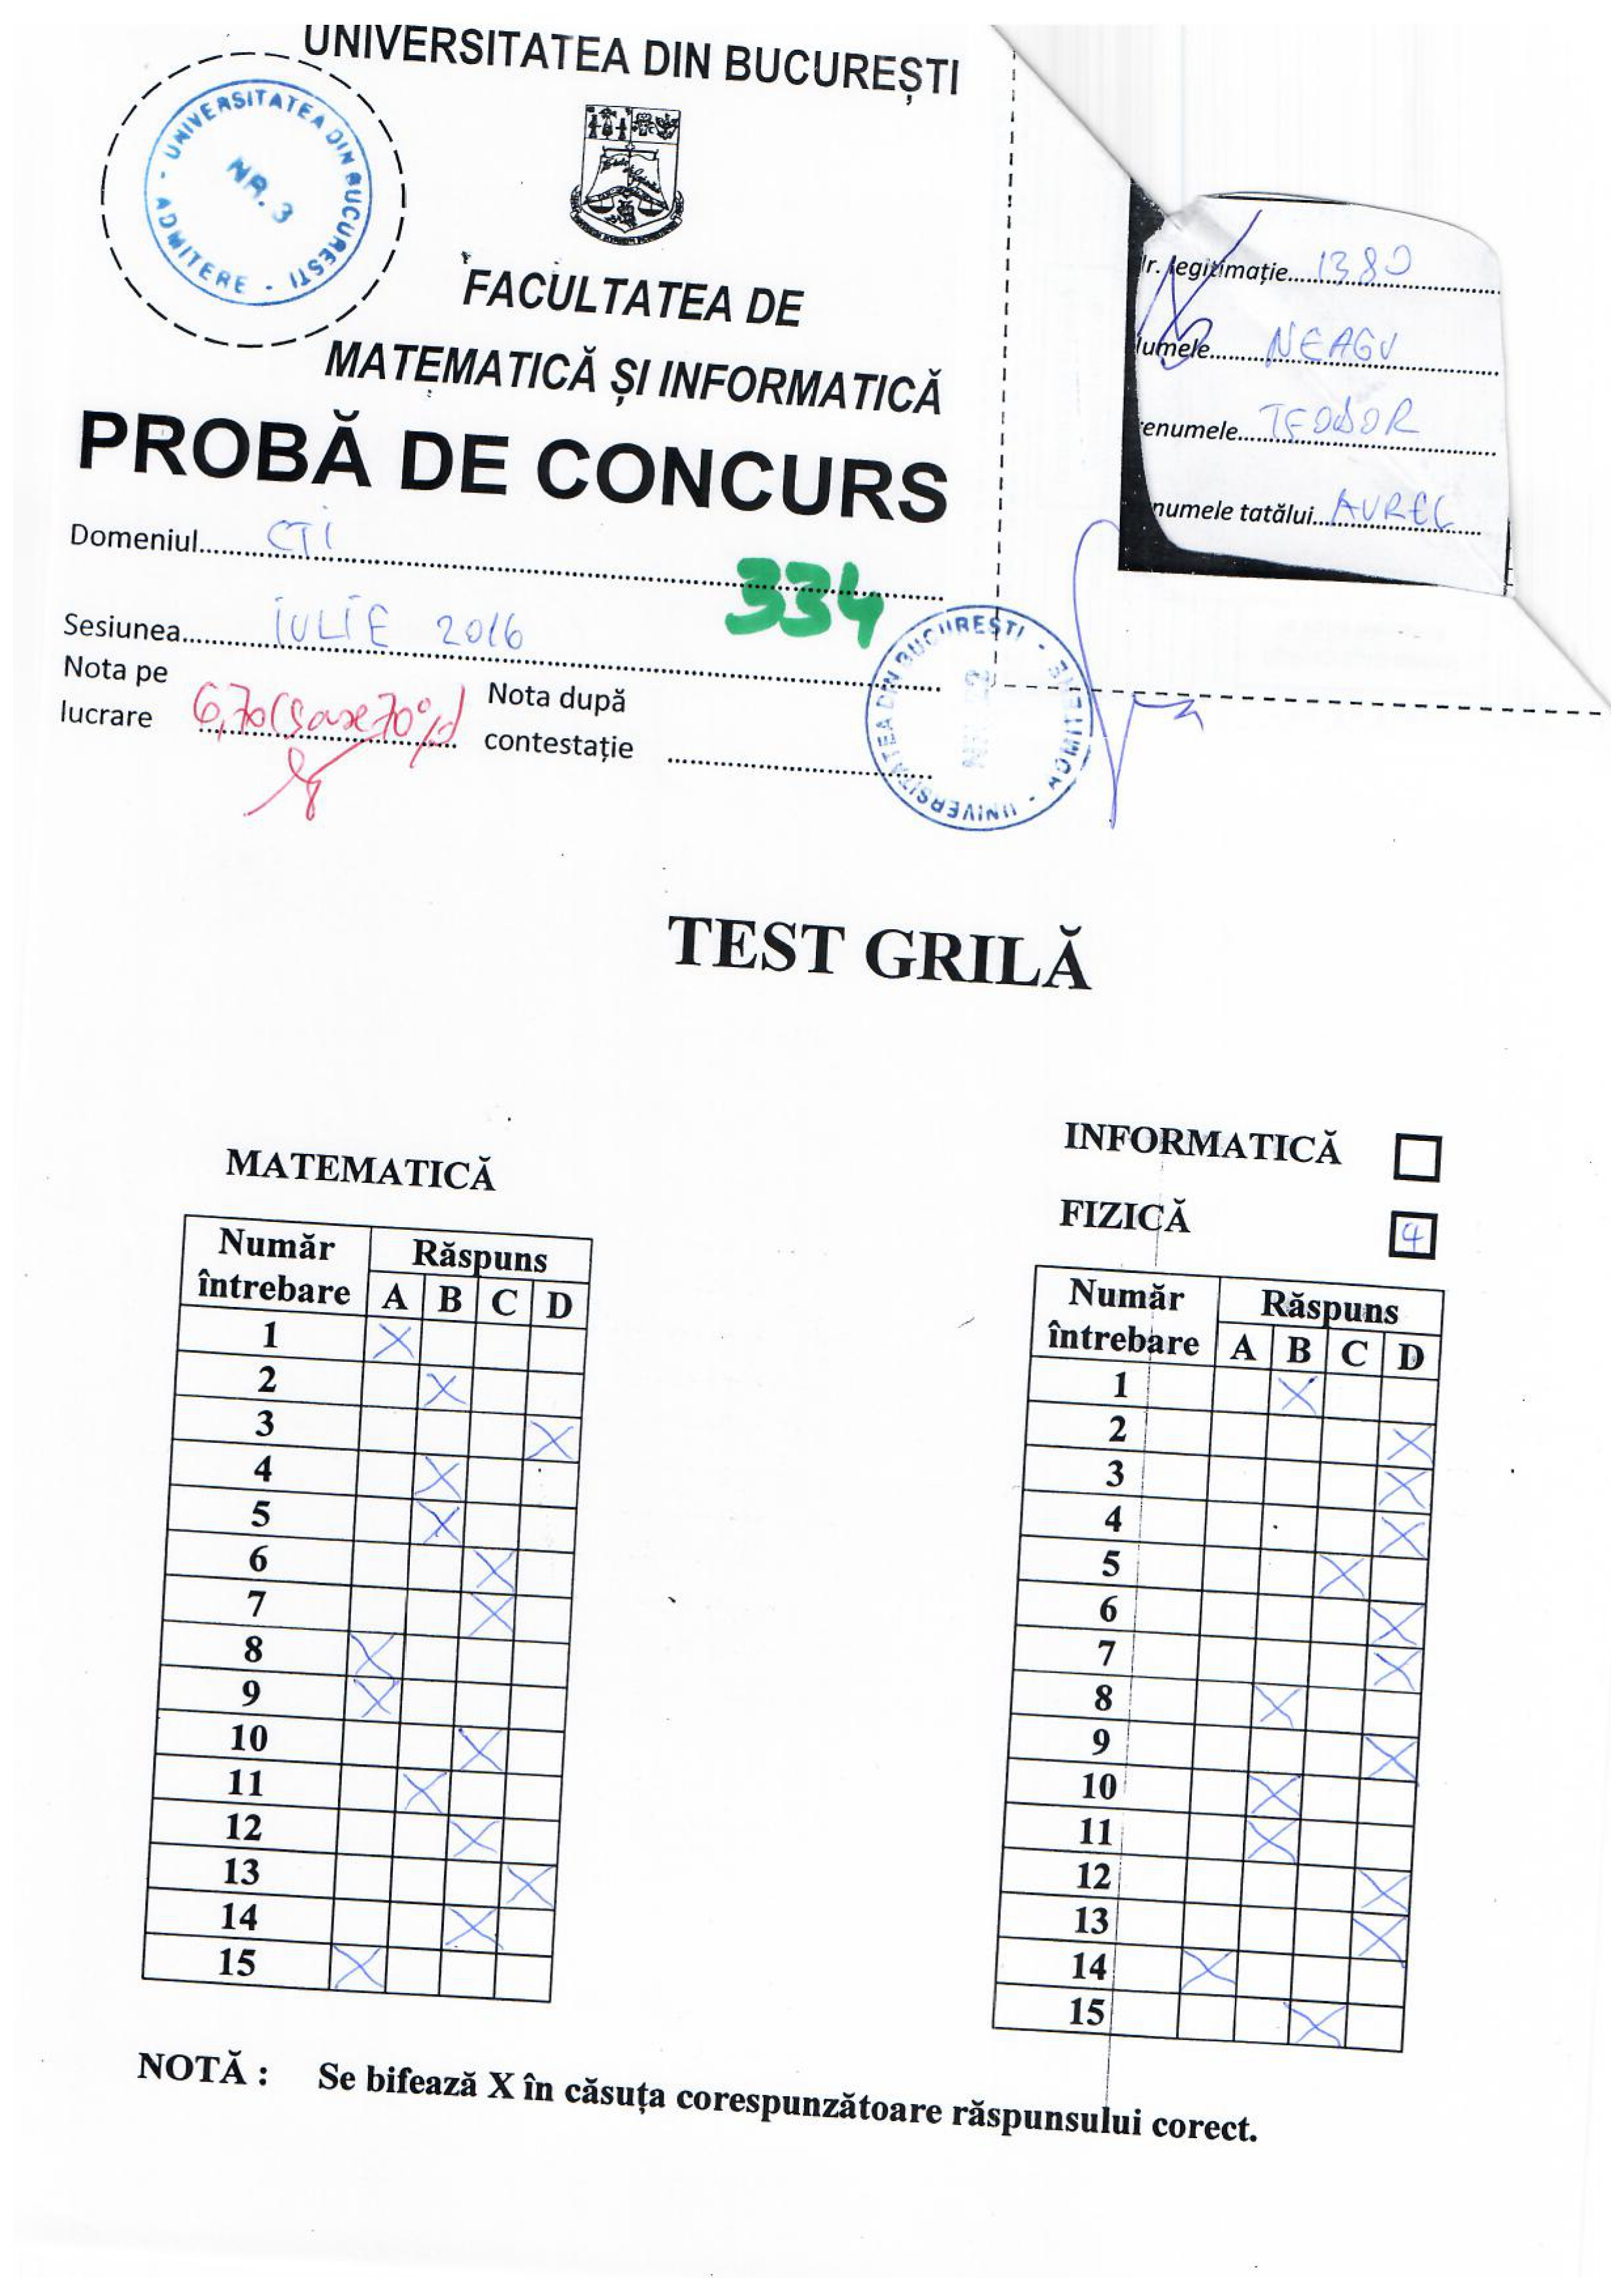 UNIVERSITATEA DIN BUCUREȘTI
- UNIVERSITATEA DIN BUCURESTI - ADMITERE
NR. 3
FACULTATEA DE
MATEMATICĂ ȘI INFORMATICĂ
PROBĂ DE CONCURS
Domeniul CTI
334
Sesiunea IULIE 2016
Nota pe
lucrare 6,70 (șase 70%)
Nota după
contestație
UNIVERSITATEA DIN BUCURESTI - ADMITERE -
r. legitimație 1380
umele NEAGU
enumele TEODOR
numele tatălui AUREL
TEST GRILĂ
MATEMATICĂ
Număr întrebare Răspuns
A B C D
1 X
2 X
3 X
4 X
5 X
6 X
7 X
8 X
9 X
10 X
11 X
12 X
13 X
14 X
15 X
INFORMATICĂ
FIZICĂ 4
Număr întrebare Răspuns
A B C D
1 X
2 X
3 X
4 X
5 X
6 X
7 X
8 X
9 X
10 X
11 X
12 X
13 X
14 X
15 X
NOTĂ : Se bifează X în căsuța corespunzătoare răspunsului corect.